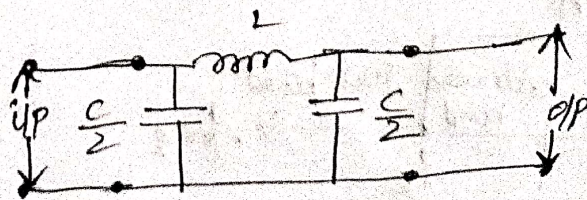 L
i/p
C/2
C/2
o/p